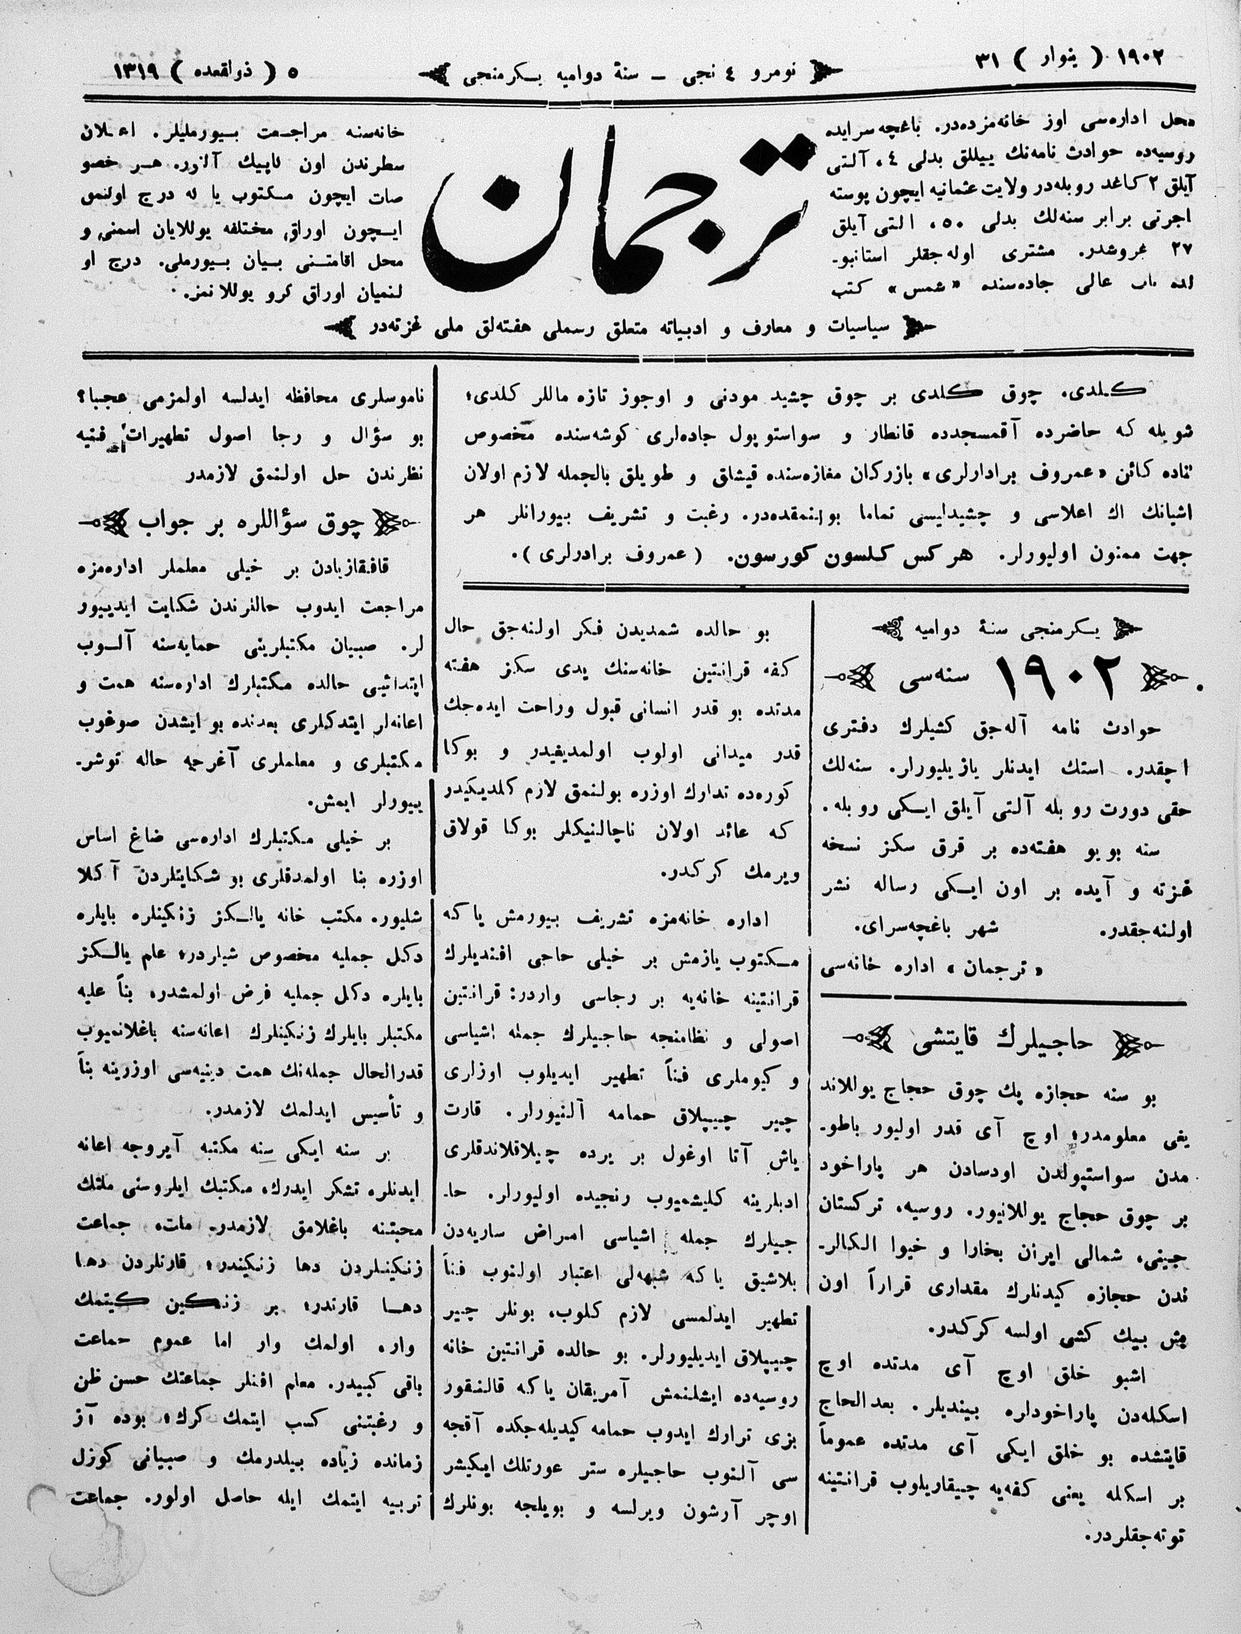 ١٩٠٢ ( ینوار ) ٣١
نومرو ٤ نجی ـ سنهٔ دوامیه یكرمنجی
٥ ( ذوالقعده ) ١٣١٩
محل اداره‌سی اوز خانه‌مزده‌در. باغچه‌سرایده
روسیه‌ده حوادث نامه‌نك ییللق بدلی ٤، آلتی
آیلق ٢ كاغد روبله‌در ولایت عثمانیه ایچون پوسته
اجرتی برابر سنه‌لك بدلی ٥٠، التی آیلق
٢٧ غروشدر. مشتری اوله‌جقلر استانبو‌ـ
لده باب عالی جاده‌سنده «شمس» كتب
ترجمان
خانه‌سنه مراجعت بیورملیلر. اعلان
سطرندن اون قاپیك آلنور. هر خصو
صات ایچون مكتوب یا له درج اولنمق
ایچون اوراق مختلفه یوللایان اسمنی و
محل اقامتنی بیان بیورملی. درج او
لنمیان اوراق كرو یوللانمز.
سیاسیات و معارف و ادبیاته متعلق رسملی هفته‌لق ملی غزته‌در
كلدی. چوق كلدی بر چوق چشید مودنی و اوجوز تازه ماللر كلدی؛
شویله كه حاضرده آقمسجدده قانطار و سواستوپول جاده‌لری كوشه‌سنده مخصوص
بناده كائن «عمروف برادارلری» بازركان مغازه‌سنده قیشلق و طویلق بالجمله لازم اولان
اشیانك اك اعلاسی و چشیدایسی تماما بولنمقده‌در. رغبت و تشریف بیورانلر هر
جهت ممنون اولیورلر. هركس كلسون كورسون. ( عمروف برادرلری ).
یكرمنجی سنهٔ دوامیه
١٩٠٢ سنه‌سی
حوادث نامه آله‌جق كشیلرك دفتری
اچقدر. استك ایدنلر یازیلیورلر. سنه‌لك
حقی دورت روبله آلتی آیلق ایكی روبله.
سنه بویو هفته‌ده بر قرق سكز نسخه
غزته و آیده بر اون ایكی رساله نشر
اولنه‌جقدر. شهر باغچه‌سرای.
«ترجمان» اداره خانه‌سی
حاجیلرك قایتشی
بو سنه حجازه پك چوق حجاج یوللاند
یغی معلومدر؛ اوچ آی قدر اولیور باطو‌ـ
مدن سواستپولدن اودسادن هر پاراخود
بر چوق حجاج یوللانیور. روسیه، تركستان
چینی، شمالی ایران بخارا و خیوا الكالر‌ـ
ندن حجازه كیدنلرك مقداری قراراً اون
بش بیك كشی اولسه كركدر.
اشبو خلق اوچ آی مدتده اوچ
اسكله‌دن پاراخودلره بیندیلر. بعدالحاج
قایتشده بو خلق ایكی آی مدتده عموماً
بر اسكله یعنی كفه‌یه چیقاریلوب قرانتینه
توته‌جقلردر.
بو حالده شمدیدن فكر اولنه‌جق حال
كفه قرانتین خانه‌سنك یدی سكز هفته
مدتده بو قدر انسانی قبول وراحت ایده‌جك
قدر میدانی اولوب اولمدیغیدر و بوكا
كوره‌ده تدارك اوزره بولنمق لازم كلدیكیدر
كه عائد اولان ناچالنیكلر بوكا قولاق
ویرمك كركدر.
اداره خانه‌مزه تشریف بیورمش یاكه
مكتوب یازمش بر خیلی حاجی افندیلرك
قرانتینه خانه‌یه بر رجاسی واردر: قرانتین
اصولی و نظامنجه حاجیلرك جمله اشیاسی
و كیوملری فناً تطهیر ایدیلوب اوزاری
چیر چیپلاق حمامه آلنیورلر. قارت
یاش آتا اوغول بر یرده چیلاقلاندقلری
ادبلرینه كلیشمیوب رنجیده اولیورلر. حا‌ـ
جیلرك جمله اشیاسی امراض ساریه‌دن
بلاشیق یاكه شبهه‌لی اعتبار اولنوب فناً
تطهیر ایدلمسی لازم كلوب، بونلر چیر
چیپلاق ایدیلیورلر. بو حالده قرانتین خانه
روسیه‌ده ایشلنمش آمریقان یاكه قالنقور
بزی ترارك ایدوب حمامه كیدیله‌جكده آقچه
سی آلنوب حاجیلره ستر عورتلك ایكیشر
اوچر آرشون ویرلسه و بویلجه بونلرك
ناموسلری محافظه ایدلسه اولمزمی عجبا؟
بو سؤال و رجا اصول تطهیرات فنیه
نظرندن حل اولنمق لازمدر
چوق سؤاللره بر جواب
قافقازیادن بر خیلی معلملر اداره‌مزه
مراجعت ایدوب حاللرندن شكایت ایدییور
لر. صبیان مكتبلرینی حمایه‌سنه آلوب
اپتدائیی حالده مكتبلرك اداره‌سنه همت و
اعانه‌لر ایتدكلری بعدنده بو ایشدن صوغوب
مكتبلری و معلملری آغرجه حاله توشر‌ـ
ییورلر ایمش.
بر خیلی مكتبلرك اداره‌سی ضاغ اساس
اوزره بنا اولمدقلری بو شكایتلردن آكلا
شلیور. مكتب خانه یالكز زنكینلره بایلره
دكل جملیه مخصوص شیلردر؛ عام یالكز
بایلره دكل جملیه فرض اولمشدر، بناً علیه
مكتبلر بایلرك زنكینلرك اعانه‌سنه باغلانمیوب
قدرالحال جمله‌نك همت دینیه‌سی اوزرینه بناً
و تأسیس ایدلمك لازمدر.
بر سنه ایكی سنه مكتبه آیروجه اعانه
ایدنلره تشكر ایدرك، مكتبك ایلروسنی ملتك
محبتنه باغلامق لازمدر. ملت، جماعت
زنكینلردن دها زنكیندر؛ قارتلردن دها
دها قارتدر؛ بر زنكین كیتمك
وار، اولمك وار اما عموم جماعت
باقی كبیدر. معلم افنلر جماعتك حسن ظن
و رغبتنی كسب ایتمك كرك؛ بوده آز
زمانده زیاده بیلدرمك و صبیانی كوزل
تربیه ایتمك ایله حاصل اولور. جماعت